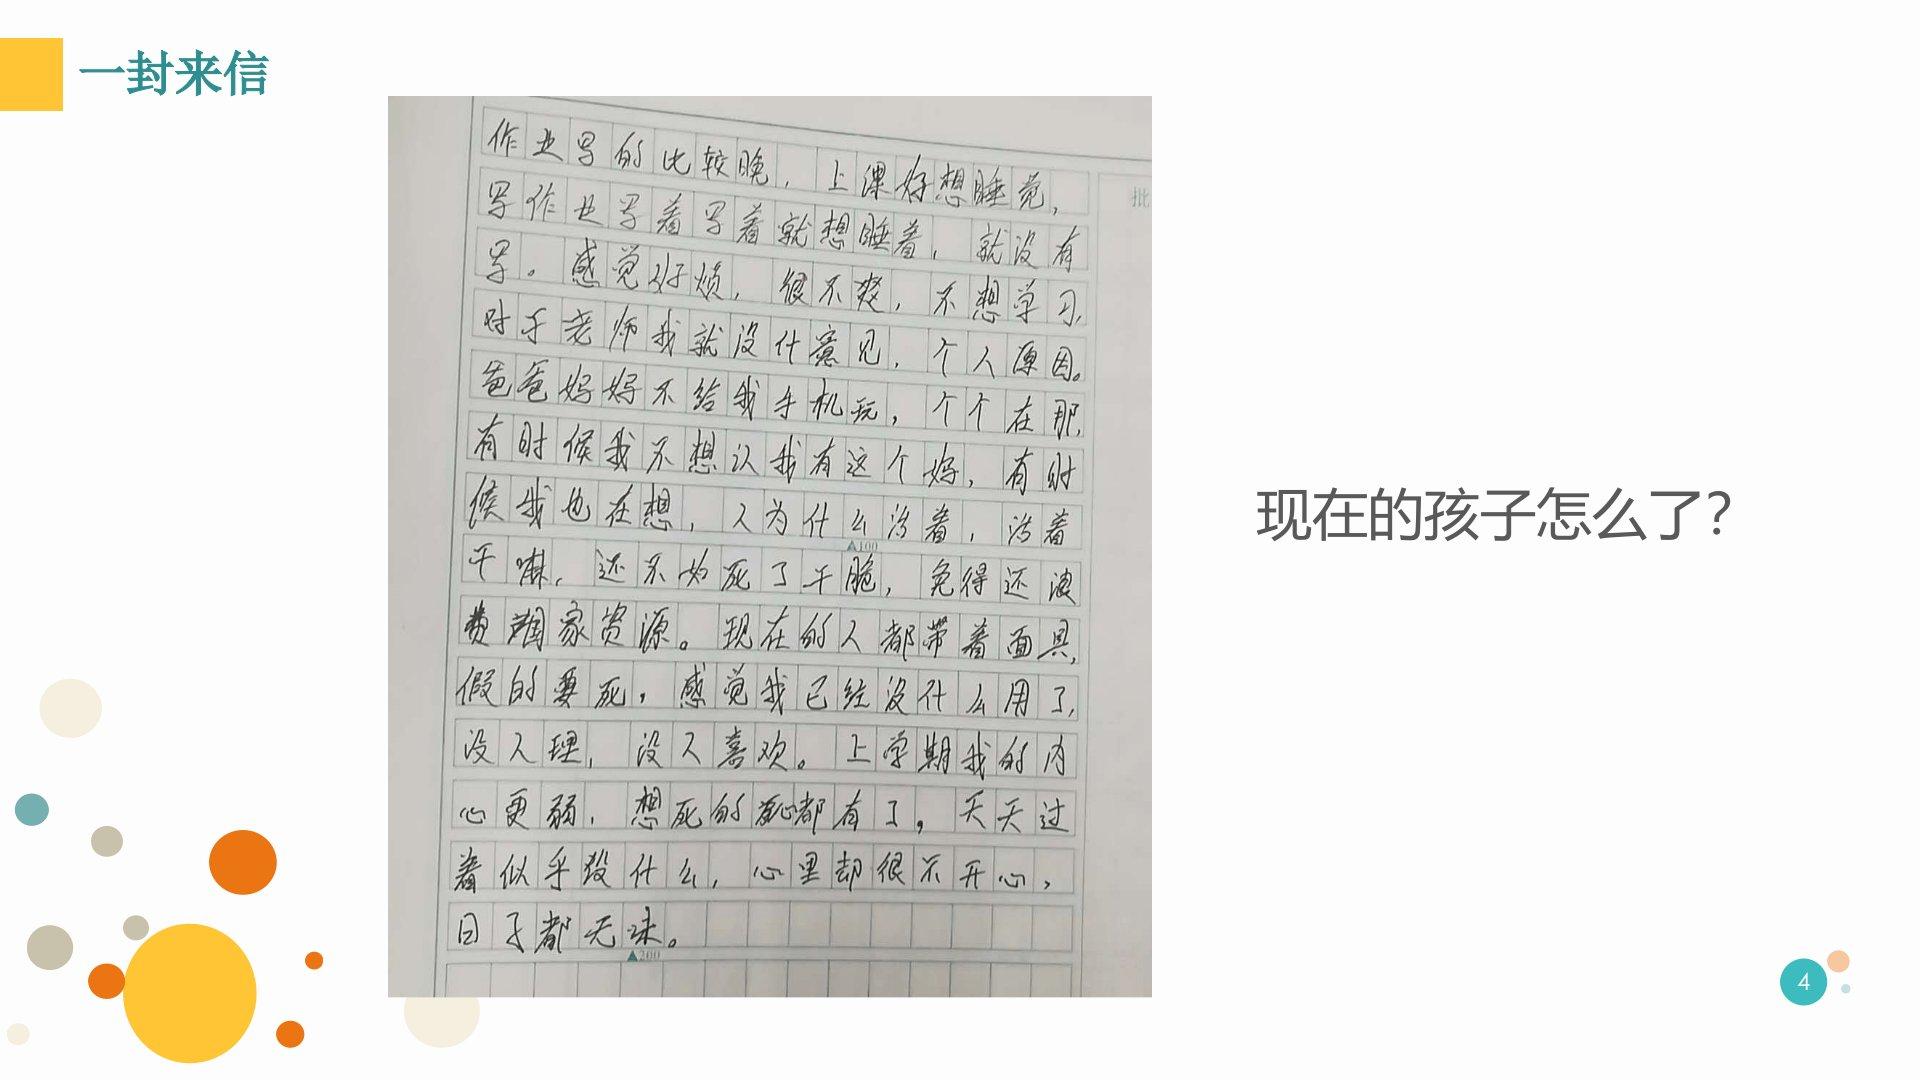 一封来信
作业写的比较晚，上课好想睡觉，
写作业写着写着就想睡着，就没有
写。感觉好烦，很不爽，不想学习，
对于老师我就没什意见，个人原因。
爸爸妈妈不给我手机玩，个个在那，
有时候我不想认我有这个妈，有时
候我也在想，人为什么活着，活着
▲100
干嘛，还不如死了干脆，免得还浪
费国家资源。现在的人都带着面具，
假的要死，感觉我已经没什么用了，
没人理，没人喜欢。上学期我的内
心更弱，想死的心都有了，天天过
着似乎没什么，心里却很不开心，
日子都无味。
▲200
批
现在的孩子怎么了？
4